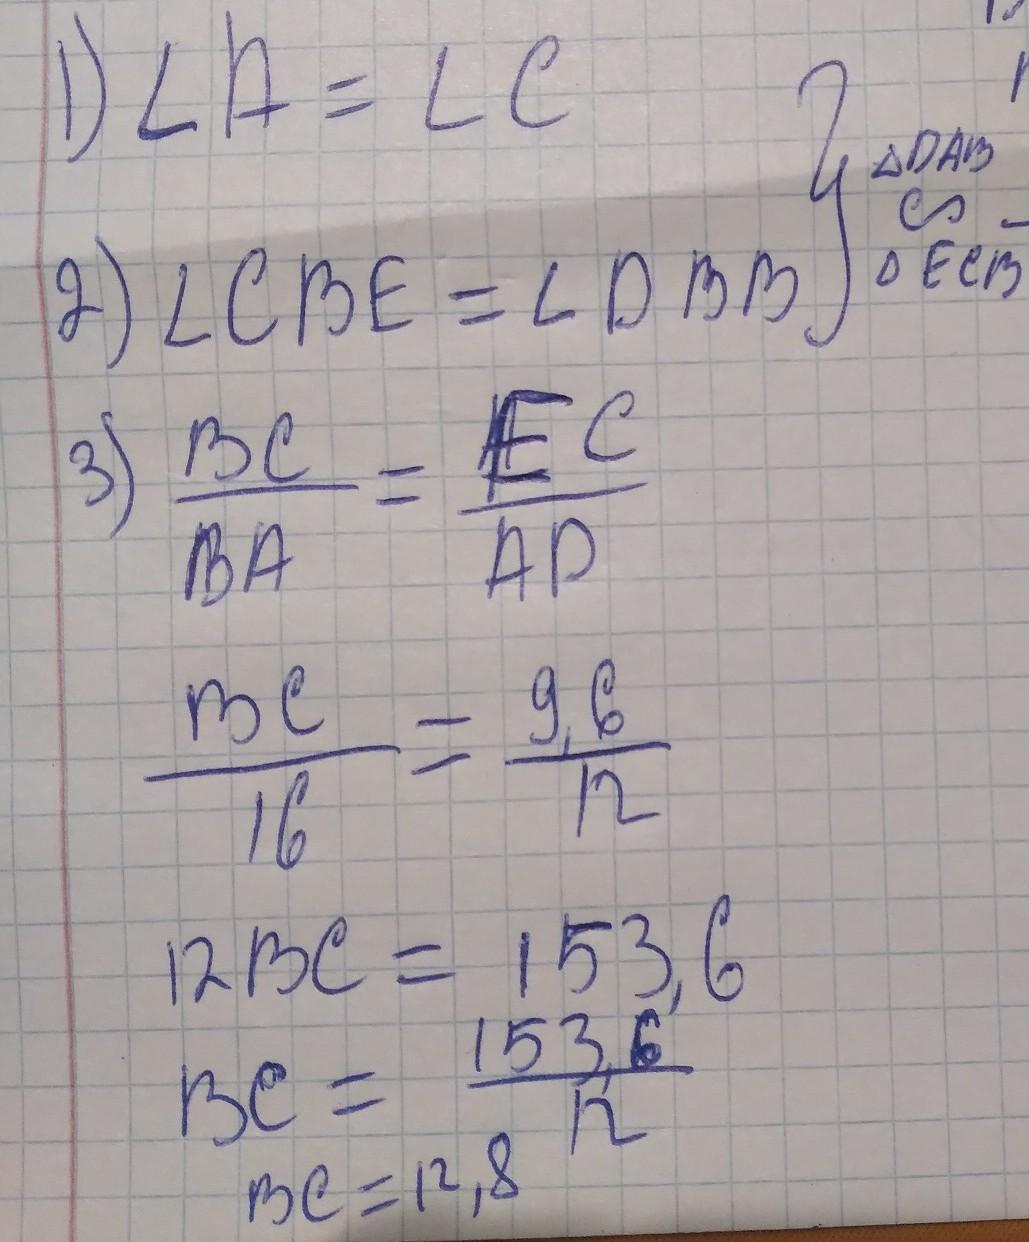 1) ∠A = ∠C
△DAB
∽
2) ∠CBE = ∠DBB
△ECB
3) BC/BA = EC/AD
BC/16 = 9,6/12
12BC = 153,6
BC = 153,6/12
BC = 12,8